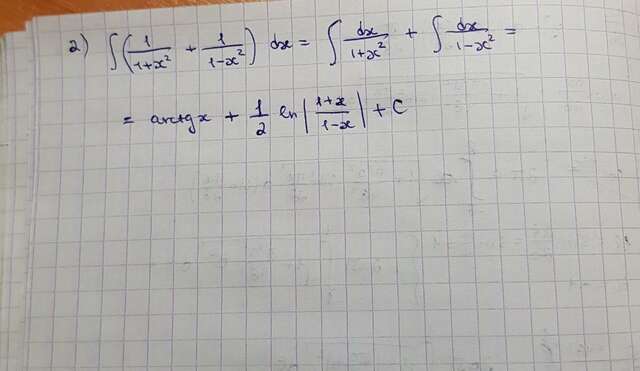 2) ∫(1/(1+x²) + 1/(1-x²)) dx = ∫ dx/(1+x²) + ∫ dx/(1-x²) =
= arctg x + 1/2 ln |(1+x)/(1-x)| + C